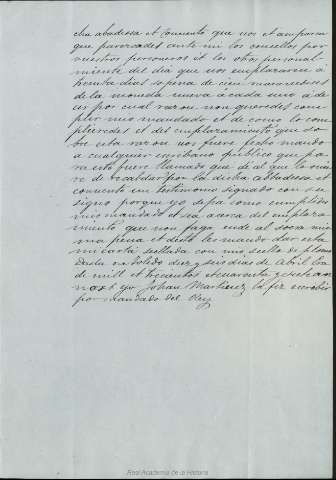 cha abadessa et convento que vos et amparen
que parescades ante mi los concellos por
vuestros personeros et los otros personal-
miente del dia que vos emplazaren á
treinta dias sopena de cien maravedises
de la moneda nueva á cada uno á de
cir por cual razon non queredes com-
plir mio mandado et de como lo com-
plieredes et del emplazamiento que so-
bre esta razon vos fuere fecho mando
a cualquier escribano público que pa-
ra esto fuere llamado que dé al que
re de recabdar por la dicha abbadessa et
convento un testimonio signado con su
signo porque yo sepa como complides
mio mandado et sea acerca del emplaza-
miento que non faga ende al so la mis-
ma pena et desto les mandé dar esta
mi carta sellada con mio siello de plomo
Dada en Toledo diez y seis dias de Abril Era
de mill et trecientos et cuarenta y siete an-
nos = yo Johan Martinez la fiz escribir
por mandado del Rey
Real Academia de la Historia